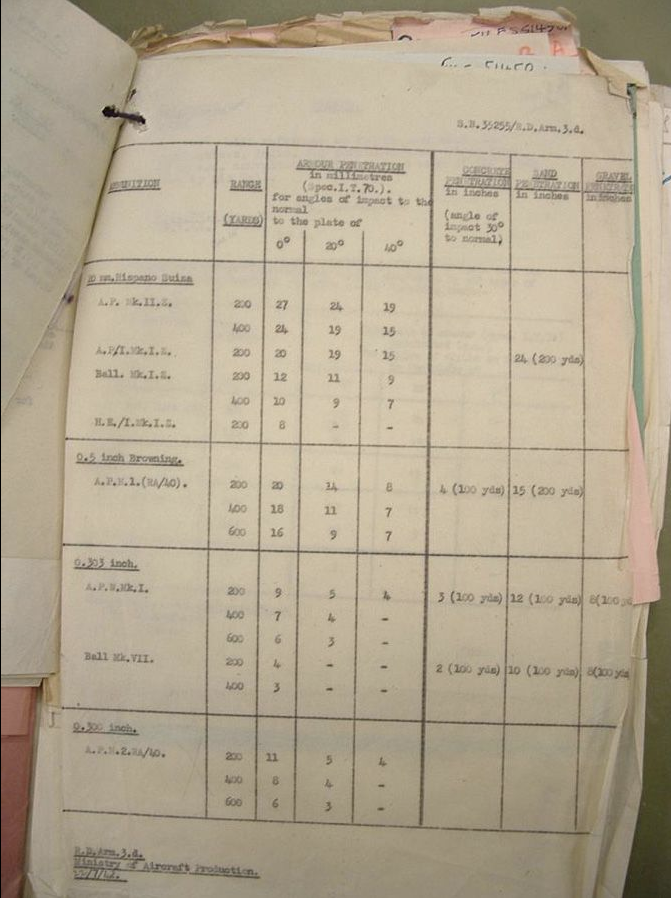 S.B. 35255/R.D.Arm.3.d.
AMMUNITION RANGE (YARDS) ARMOUR PENETRATION in millimetres (Spec.I.T.70.). for angles of impact to the normal to the plate of CONCRETE PENETRATION in inches (angle of impact 30° to normal) SAND PENETRATION in inches GRAVEL in inches
0° 20° 40°
20 mm.Hispano Suiza
A.P. Mk.II.Z. 200 27 24 19
400 24 19 15
A.P/I.Mk.I.Z. 200 20 19 15 24 (200 yds)
Ball. Mk.I.Z. 200 12 11 9
400 10 9 7
H.E./I.Mk.I.Z. 200 8 - -
0.5 inch Browning.
A.P.M.1.(RA/40). 200 20 14 8 4 (100 yds) 15 (200 yds)
400 18 11 7
600 16 9 7
0.303 inch.
A.P.W.Mk.I. 200 9 5 4 3 (100 yds) 12 (100 yds) 8(100
400 7 4 -
600 6 3 -
Ball Mk.VII. 200 4 - - 2 (100 yds) 10 (100 yds) 8(100 yds
400 3 - -
0.300 inch.
A.P.M.2.RA/40. 200 11 5 4
400 8 4 -
600 6 3 -
R.D.Arm.3.d.
Ministry of Aircraft Production.
/7/42.